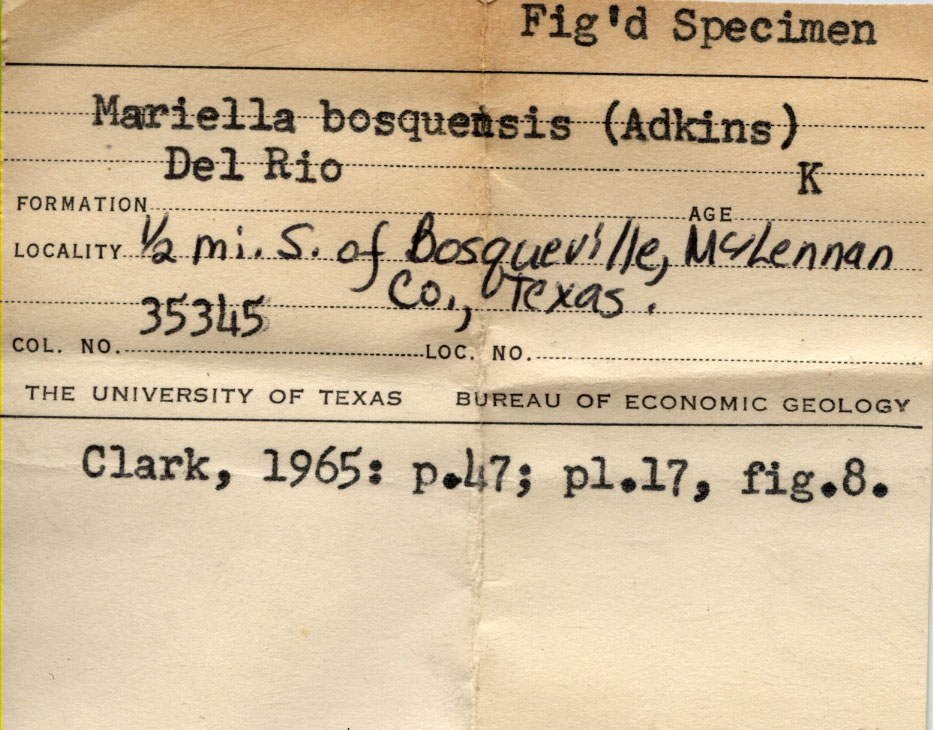 Fig'd Specimen
Mariella bosquensis (Adkins)
Del Rio K
FORMATION AGE
LOCALITY ½ mi. S. of Bosqueville, McLennan
Co., Texas.
35345
COL. NO. LOC. NO.
THE UNIVERSITY OF TEXAS BUREAU OF ECONOMIC GEOLOGY
Clark, 1965: p.47; pl.17, fig.8.